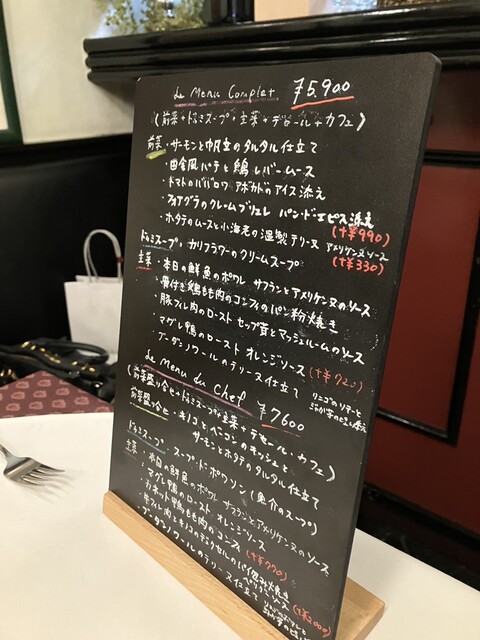 Le Menu Complet ¥5,900
(前菜+ドゥミスープ+主菜+デセール+カフェ)
前菜・サーモンと帆立のタルタル仕立て
・田舎風パテと鶏レバームース
・トマトのババロワ アボカドのアイス添え
・フォアグラのクレームブリュレ パンドエピス添え (+¥990)
・ホタテのムースと小海老の温製テリーヌ アメリケンヌソース (+¥330)
ドゥミスープ・カリフラワーのクリームスープ
主菜・本日の鮮魚のポワレ サフランとアメリケンヌのソース
・骨付き鶏もも肉のコンフィのパン粉焼き
・豚フィレ肉のロースト セップ茸とマッシュルームのソース
・マグレ鴨のロースト オレンジソース (+¥720)
・ブーダンノワールのテリーヌ仕立て リンゴのソテーと
Le Menu du Chef ¥7600
(前菜盛り合せ+ドゥミスープ+主菜+デセール+カフェ)
前菜盛り合せ・キノコとベーコンのキッシュと
サーモンとホタテのタルタル仕立て
ドゥミスープ・スープ・ド・ポワソン (魚介のスープ)
主菜・本日の鮮魚のポワレ サフランとアメリケンヌのソース
・マグレ鴨のロースト オレンジソース
・骨付き鶏もも肉の (+¥770)
・牛フィレ肉とキノコのデュクセルのパイ包み焼き ペリグーソース (+¥2000)
・ブーダンノワールのテリーヌ仕立て